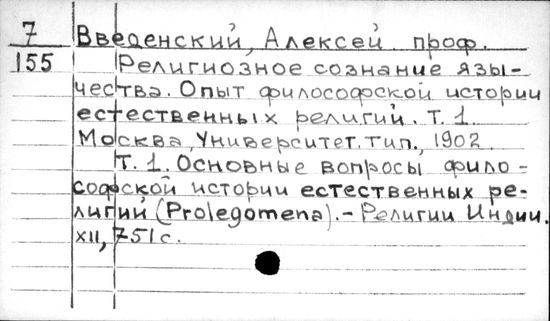 7 Введенский, Алексей проф.
155 Религиозное сознание язы-
чества. Опыт философской истории
естественных религий. Т. 1.
Москва, Университет. тип., 1902.
Т. 1. Основные вопросы фило-
софской истории естественных ре-
лигий (Prolegomena). - Религии Индии.
XII, 751 с.